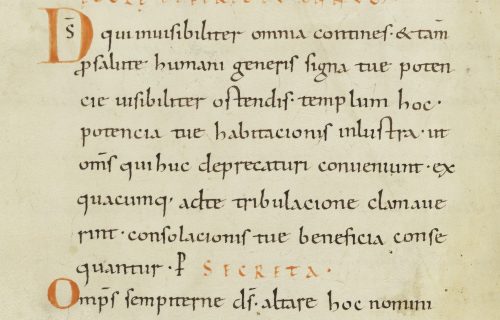 D̄s qui inuisibiliter omnia contines· & tam̄
ꝓ salute humani generis signa tue poten
cie uisibiliter ostendis· templum hoc·
potencia tue habitacionis inlustra· ut
om̄s qui huc deprecaturi conueniunt· ex
quacumq· adte tribulacione clamaue
rint· consolacionis tue beneficia conse
quantur· ꝑ SECRETA·
Omp̄s sempiterne d̄s· altare hoc nomini